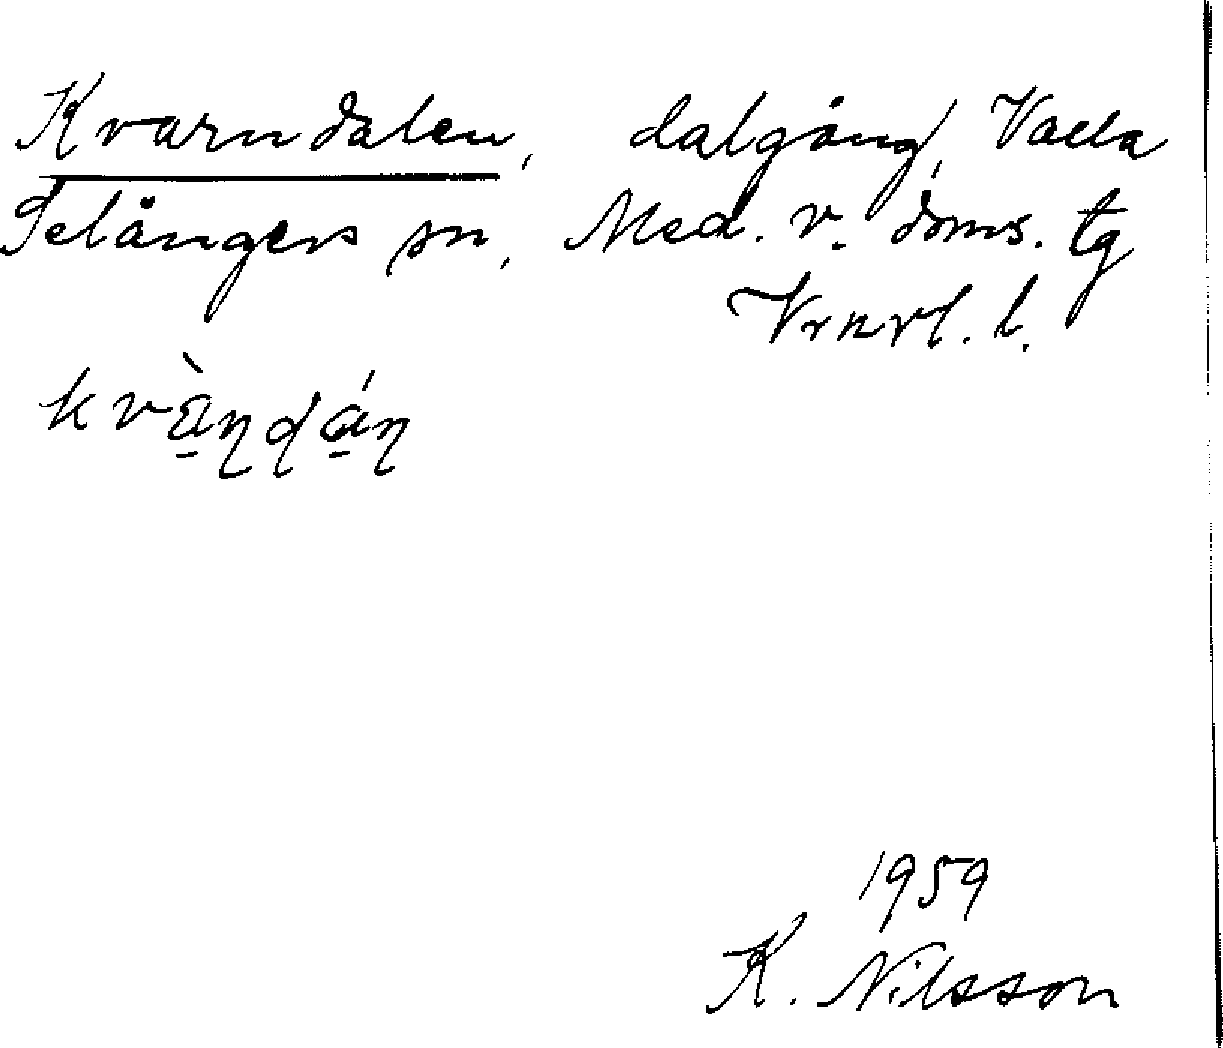 Kvarndalen, dalgång, Valla
Selångers sn, Med. v. doms. tg
Vrnrl. l.
kvàṇḍáṇ
1959
K. Nilsson